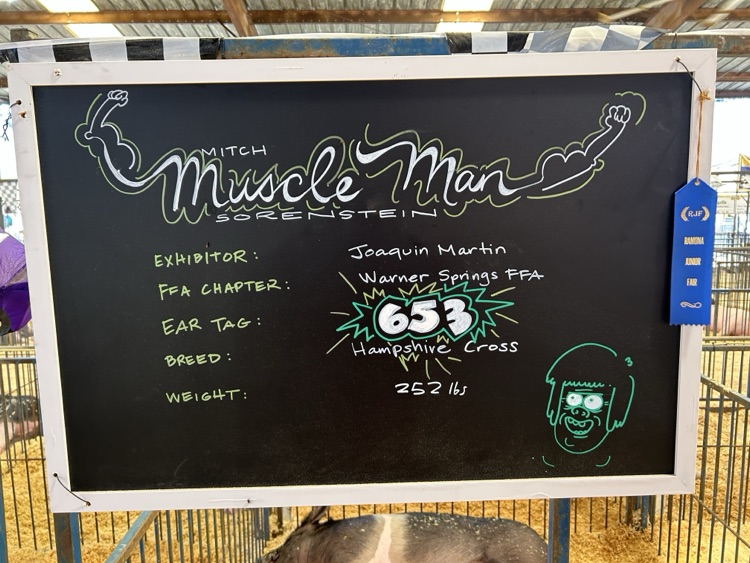 MITCH
Muscle Man
SORENSTEIN
EXHIBITOR: Joaquin Martin
FFA CHAPTER: Warner Springs FFA
EAR TAG: 653
BREED: Hampshire Cross
WEIGHT: 252 lbs
RJF
RAMONA
JUNIOR
FAIR